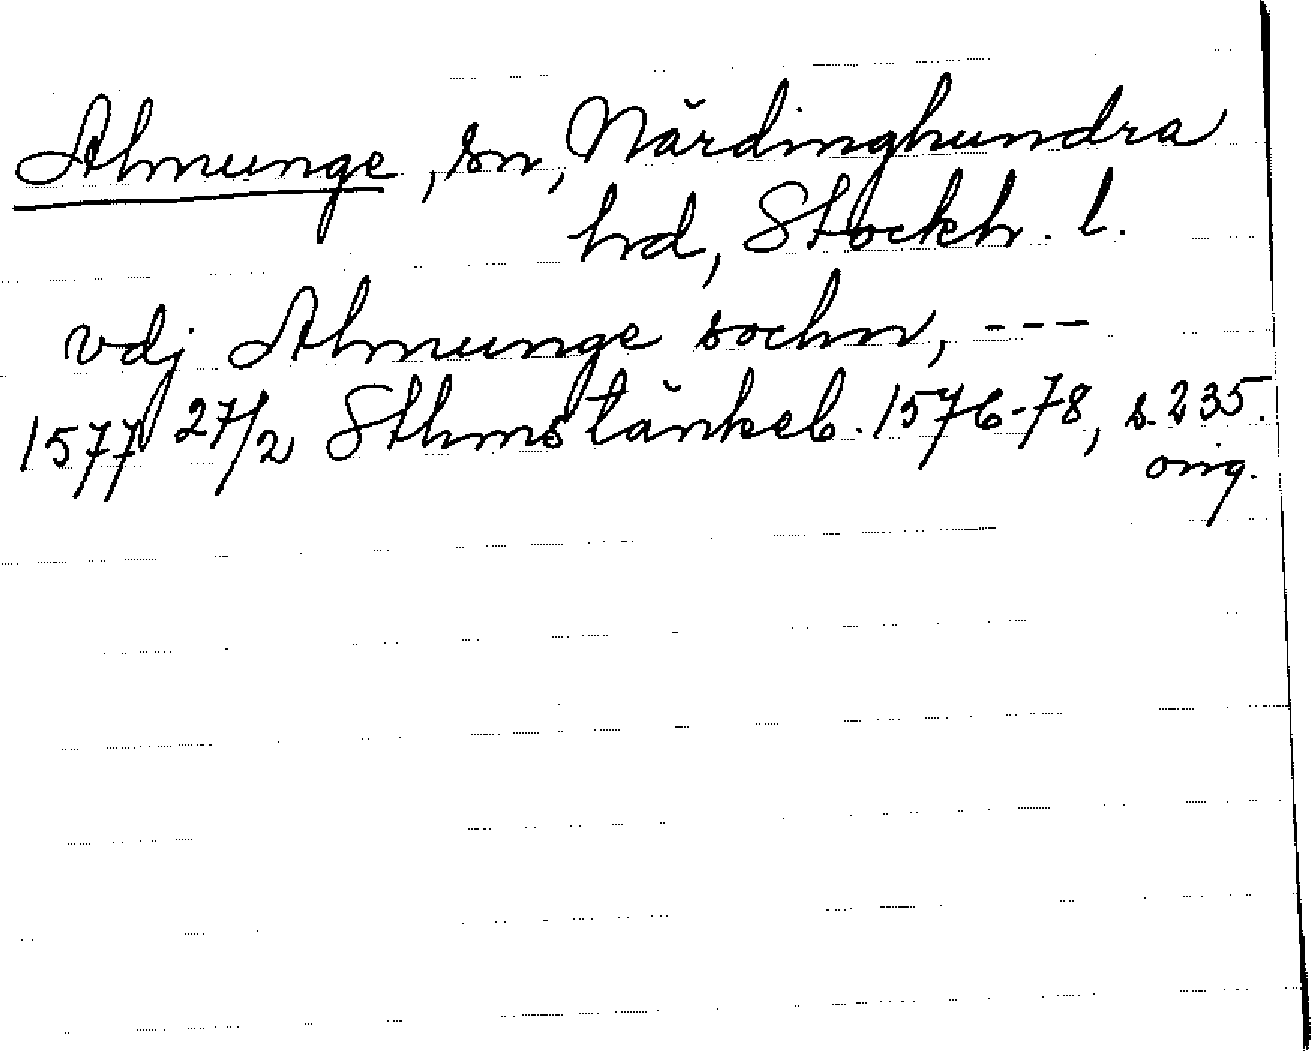 Almunge, sn, Närdinghundra
hrd, Stockh. l.
vdj Almunge sochn, ---
1577 27/2 Sthmstänkeb. 1576-78, s. 235.
orig.